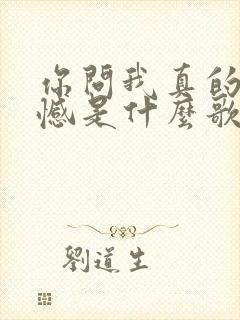 你問我真的
憾是什麼歌
劉道生